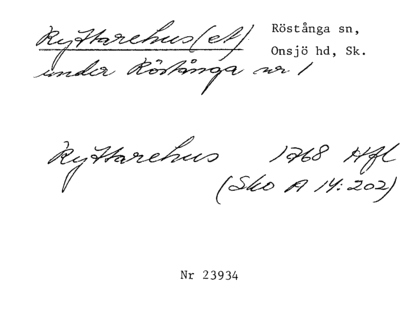 Ryttarehus(et) Röstånga sn,
Onsjö hd, Sk.
under Röstånga nr 1
Ryttarehus 1768 Hfl
(Sko A 14:202)
Nr 23934